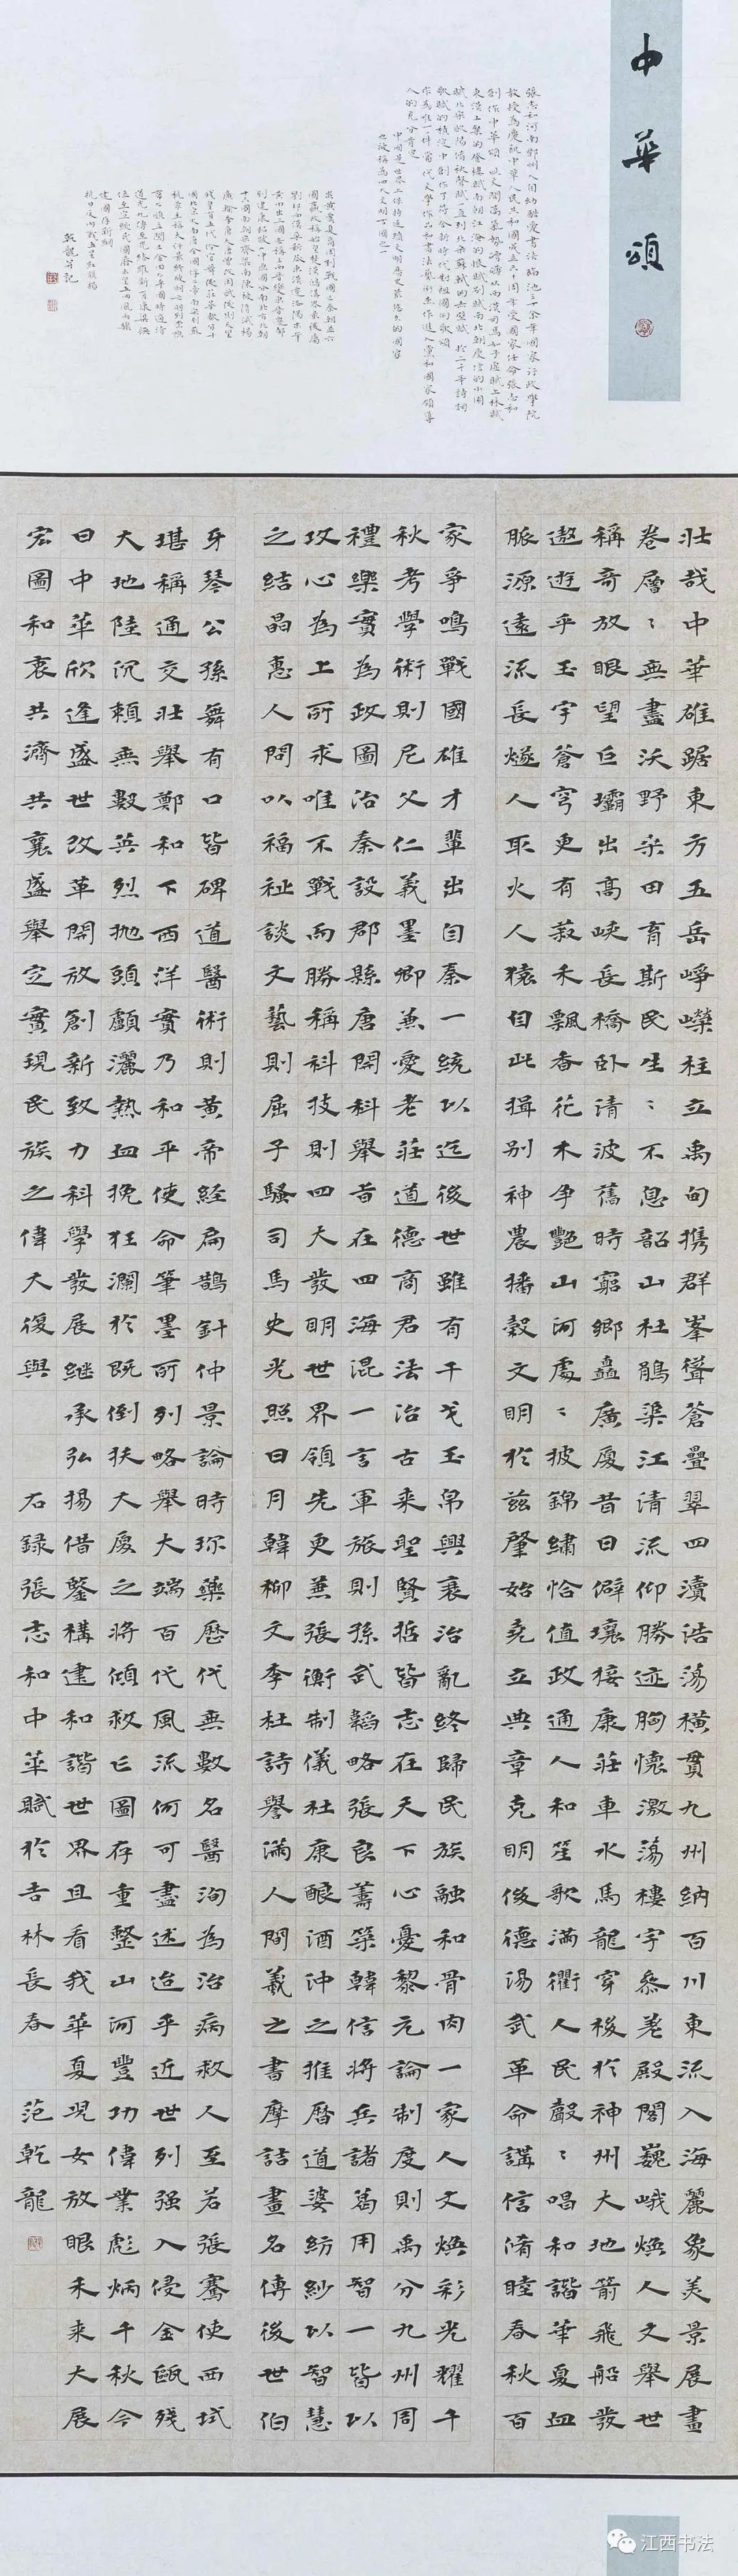 中華頌
張志和河南鄧州人自幼酷愛書法臨池三十余年國家行政學院
教授為慶祝中華人民共和國成立六十周年受國家任命張志和
創作中華頌此文開篇氣勢磅礴
作為唯一一件當代文學作品和書法藝術杰作進入黨和國家領導
人的充分肯定
中國是世界上保持延續文明歷史最悠久的國家
也被稱為四大文明古國之一
乾龍并記
壯哉中華雄踞東方五岳崢嶸柱立禹甸攜群峯聳蒼疊翠四瀆浩蕩橫貫九州納百川東流入海麗象美景展畫
卷層〻無盡沃野桒田育斯民生〻不息韶山杜鵑渠江清流仰勝迹胸懷激蕩樓宇叅差殿閣巍峨煥人文舉世
稱奇放眼望巨壩出高峽長橋臥清波舊時窮鄉矗廣廈昔日僻壤接康莊車水馬龍穿梭於神州大地箭飛船發
遨遊乎玉宇蒼穹更有菽禾飄香花木爭艷山河處〻披錦繡恰值政通人和笙歌滿衢人民聲〻唱和諧華夏血
脈源遠流長燧人取火人猿自此揖別神農播穀文明於茲肇始堯立典章克明俊德湯武革命講信脩睦春秋百
家爭鳴戰國雄才輩出自秦一統以迄後世雖有干戈玉帛興衰治亂終歸民族融和骨肉一家人文煥彩光耀千
秋考學術則尼父仁義墨卿兼愛老莊道德商君法治古來聖賢哲皆志在天下心憂黎元論制度則禹分九州周
禮樂實為政圖治秦設郡縣唐開科舉昔在四海混一言軍旅則孫武韜略張良籌策韓信將兵諸葛用智一皆以
攻心為上所求唯不戰而勝稱科技則四大發明世界領先更兼張衡制儀杜康釀酒沖之推曆道婆紡紗以智慧
之結晶惠人間以福祉談文藝則屈子騷司馬史光照日月韓柳文李杜詩譽滿人間羲之書摩詰畫名傳後世伯
牙琴公孫舞有口皆碑道醫術則黃帝經扁鵲針仲景論時珍藥歷代無數名醫洵為治病救人至若張騫使西域
堪稱通交壯舉鄭和下西洋實乃和平使命筆墨所列略舉大端百代風流何可盡述迨乎近世列强入侵金甌殘
大地陸沉賴無數英烈拋頭顱灑熱血挽狂瀾於既倒扶大廈之將傾救亡圖存重整山河豐功偉業彪炳千秋今
日中華欣逢盛世改革開放創新致力科學發展繼承弘揚借鑒構建和諧世界且看我華夏兒女放眼未來大展
宏圖和衷共濟共襄盛舉定實現民族之偉大復興 右錄張志和中華賦於吉林長春 范乾龍
江西书法